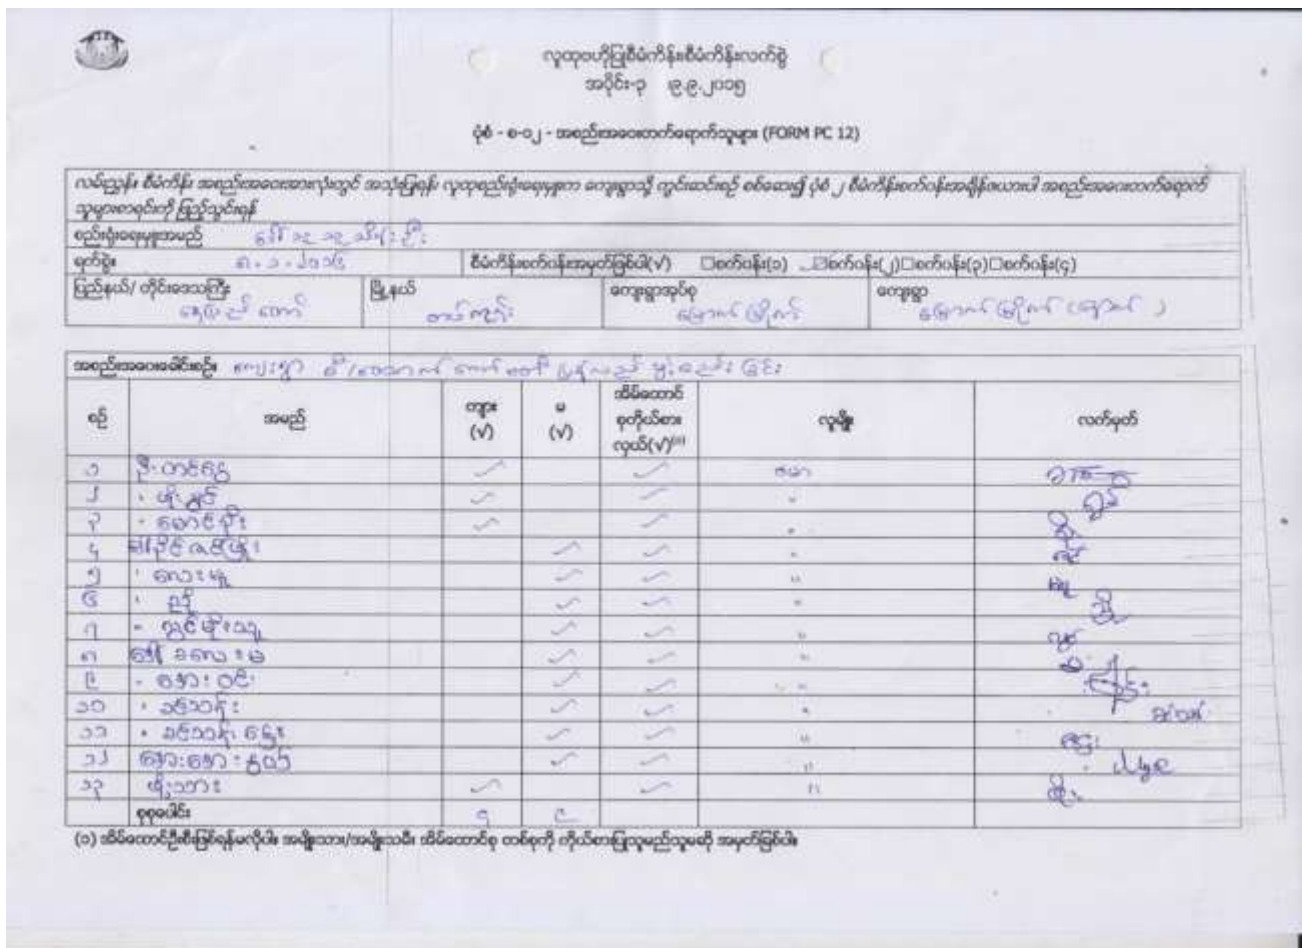 လူထုဗဟိုပြုစီမံကိန်းစီမံကိန်းလက်စွဲ
အပိုင်း-၃ ၊၉.၉.၂၀၁၅
ပုံစံ - စ-၁၂ - အစည်းအဝေးတက်ရောက်သူများ (FORM PC 12)
လမ်းညွှန်။ စီမံကိန်း အစည်းအဝေးအားလုံးတွင် အသုံးပြုရန်၊ လူထုစည်းရုံးရေးမှူးက ကျေးရွာသို့ ကွင်းဆင်းစဉ် စစ်ဆေး၍ ပုံစံ ၂ စီမံကိန်းစက်ဝန်းအချိန်ဇယားပါ အစည်းအဝေးတက်ရောက်
သူများစာရင်းကို ဖြည့်သွင်းရန်
စည်းရုံးရေးမှူးအမည် ဒေါ်သူသူသိမ့်ဦး
ရက်စွဲ။ ၈.၁.၂၀၁၆ စီမံကိန်းစက်ဝန်းအမှတ်ခြစ်ပါ(√) □စက်ဝန်း(၁) □စက်ဝန်း(၂)□စက်ဝန်း(၃)□စက်ဝန်း(၄)
ပြည်နယ်/ တိုင်းဒေသကြီး မြို့နယ် ကျေးရွာအုပ်စု ကျေးရွာ
နေပြည်တော် တပ်ကုန်း မြောက်မြိုက် မြောက်မြိုက်
အစည်းအဝေးခေါင်းစဉ်။ ကျေးရွာ စီ/ထောက် ကော်မတီ ပြန်လည် ဖွဲ့စည်းခြင်း
စဉ် အမည် ကျား (√) မ (√) အိမ်ထောင်စုကိုယ်စားလှယ်(√)⁽¹⁾ လူမျိုး လက်မှတ်
၁ ဦးတင်ရွှေ ✓ ✓ ဗမာ
၂ " ဖိုးရွှင် ✓ ✓ "
၃ " မောင်စိုး ✓ ✓ "
၄ ✓ ✓ " ဇင်
၅ " လေးမျှူ ✓ ✓ "
၆ " ညို ✓ ✓ " ညို
၇ " လွင်မိုးသူ ✓ ✓ " လွင်
၈ ဒေါ် ခလေးမ ✓ ✓ " မ
၉ " အေးဝင်း ✓ ✓ "
၁၀ " ခင်သန်း ✓ ✓ " ခင်သန်း
၁၁ " ခင်သန်းဌေး ✓ ✓ " ဌေး
၁၂ အေးအေးနွယ် ✓ ✓ "
၁၃ ဖိုးသား ✓ ✓ " ဖိုး
စုစုပေါင်း ၄ ၉
(၁) အိမ်ထောင်ဦးစီးဖြစ်ရန်မလိုပါ။ အမျိုးသား/အမျိုးသမီး အိမ်ထောင်စု တစ်စုကို ကိုယ်စားပြုသူမည်သူမဆို အမှတ်ခြစ်ပါ။